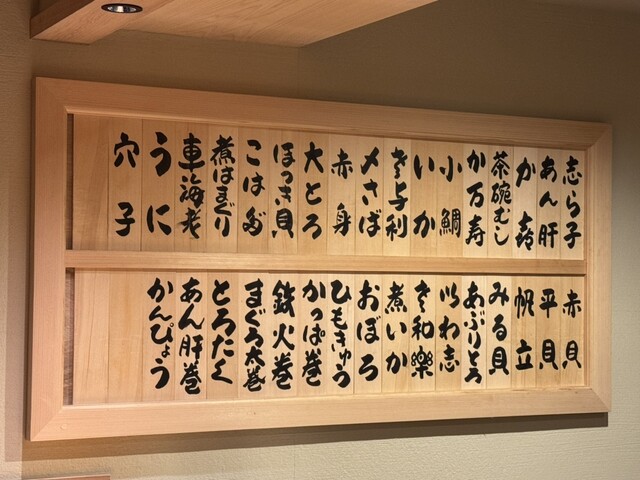 志ら子
あん肝
か喜
茶碗むし
か万寿
小鯛
いか
さ与利
〆さば
赤身
大とろ
ほっき貝
こはだ
煮はまぐり
車海老
うに
穴子
赤貝
平貝
帆立
みる貝
あぶりとろ
以わ志
さ和樂
煮いか
おぼろ
ひもきゅう
かっぱ巻
鉄火巻
まぐろ太巻
とろたく
あん肝巻
かんぴょう